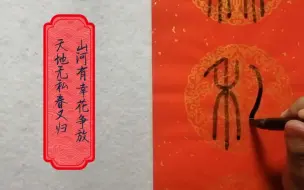 山河有幸花争放
天地无私春又归
私